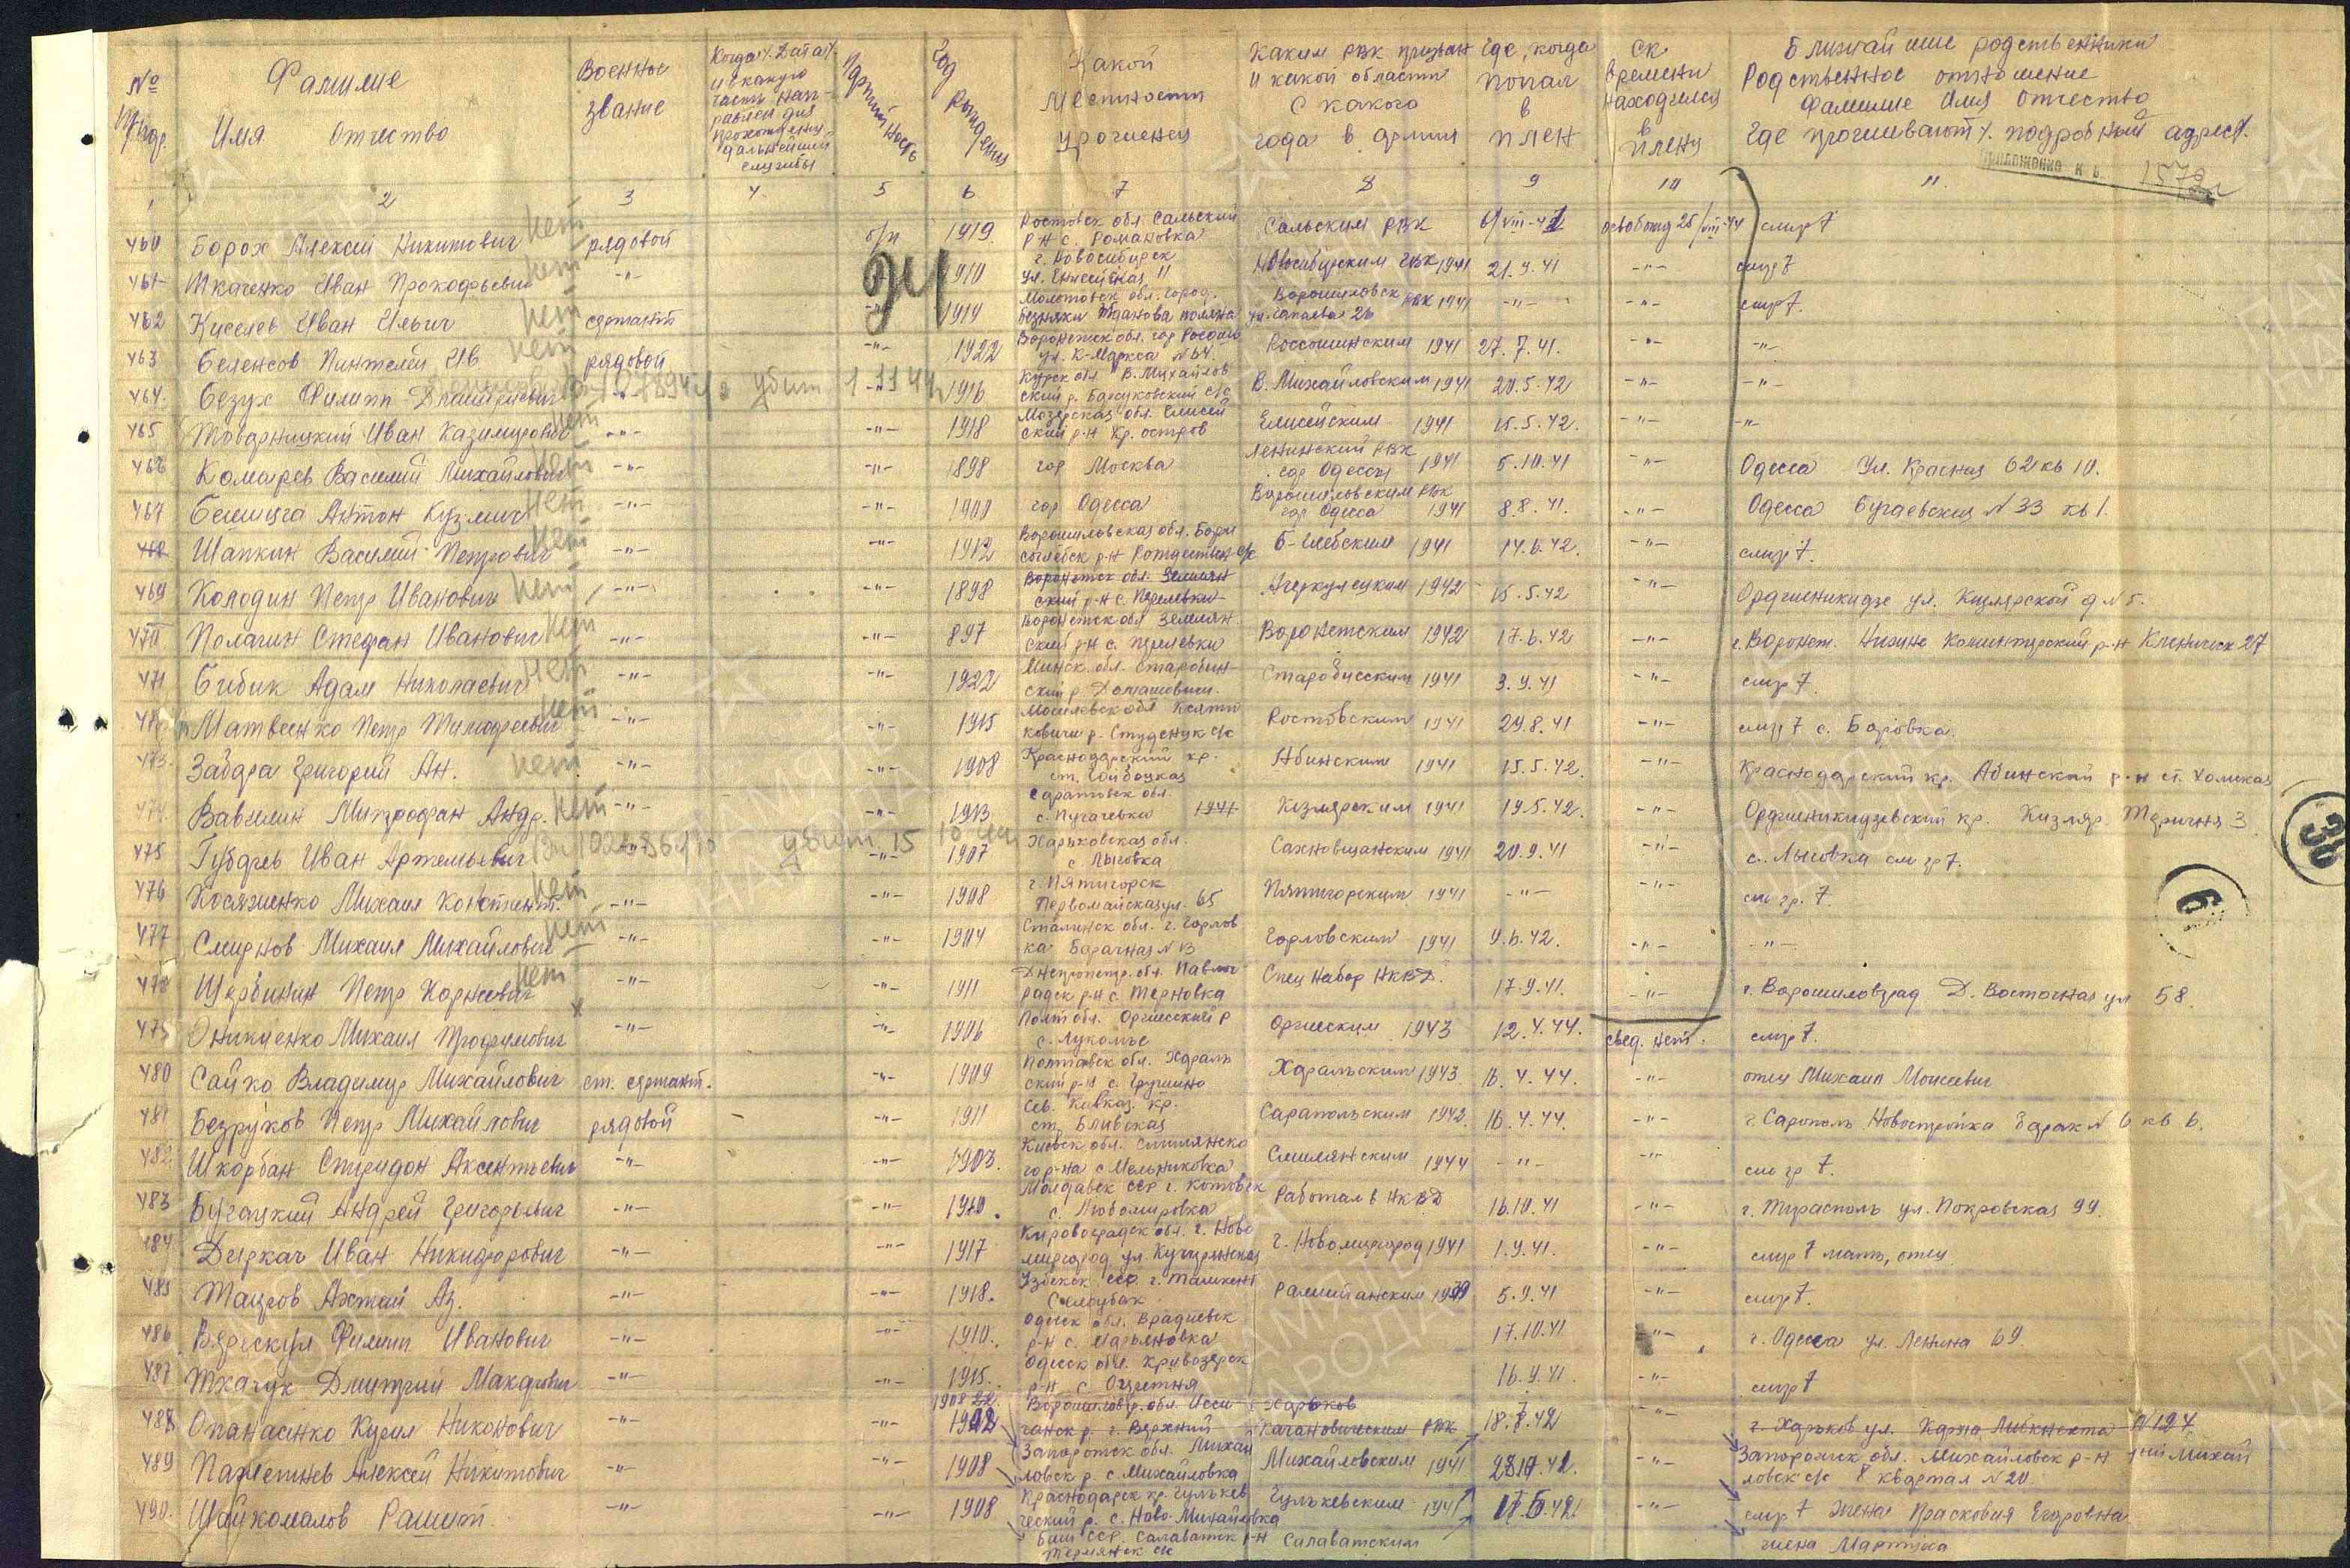 №
Фамилие
Имя Отчество
Военное звание
Когда (дата) и в какую часть направлен для прохождения дальнейшей службы
Партийность
Год рождения
Какой местности урочиенец
Каким РВК призван и какой области с какого года в армии
Где, когда попал в плен
Ск времени находился в плену
Ближайшие родственники
Родственное отношение
Фамилие Имя Отчество
Где проживают подробный адрес.
Приложение к в. 1572
2 3 4. 5 6 7 8 9 10 11.
460 Борох Алексей Никитович нет рядовой б/п 1919. Ростовск обл. Сальский р-н с. Романовка Сальским РВК 6/VIII-42 освобожд 25/VIII-44 см гр 7
461 Ткаченко Иван Прокофьевич нет -"- 1910 г. Новосибирск ул. Енисейская 11 Новосибирским РВК 1941 21.9.41 -"- см гр 7
462 Киселев Иван Ильич нет сержант 1919 Молотовск обл. город. Ворошиловск РВК 1941 ул. Чапаева 26 -"- -"- см гр 7.
463 Беленсов Пантелей Ив нет рядовой -"- 1922 Воронежск обл. гор Россошь ул. К-Маркса №64. Россошинским 1941 27.7.41. -"- -"-
464. Безух Филипп Дмитриевич -"- убит 1 11 44 -"- 1916 Курск обл В. Михайловский р. Барсуковский с/с В. Михайловским 1941 20.5.42 -"- -"-
465 Товарницкий Иван Казимирович нет -"- -"- 1918 Мозерская обл. Елисейский р-н Кр. остров Елисейским 1941 15.5.42. -"- -"-
466 Комарев Василий Михайлович нет -"- -"- 1898 гор Москва Ленинский РВК гор Одесса 1941 5.10.41 -"- Одесса Ул. Красная 62 кв 10.
467 Белицга Антон Кузмич нет -"- -"- 1900 гор Одесса Ворошиловским РВК гор Одесса 1941 8.8.41. -"- Одесса Бугаевская №33 кв 1.
468 Шапкин Василий Петрович нет -"- -"- 1912 Ворошиловская обл. Борисоглебск р-н Рождествен с/с Б-глебским 1941 14.6.42. -"- см гр 7.
469 Колодин Петр Иванович нет -"- -"- 1898 Воронежск обл. Землянский р-н с. Перлевки Агеркулецким 1942 15.5.42 -"- Орджоникидзе ул. Кизлярской д №5.
470 Полагин Стефан Иванович нет -"- -"- 897 Воронежск обл Землянский р-н с. Перлевки Воронежским 1942 17.6.42 -"- г. Воронеж.
471 Бибик Адам Николаевич нет -"- -"- 1922 Минск. обл. Старобинский р. Домашовичи. Старобинским 1941 3.9.41 -"- см гр 7.
472 Матвеенко Петр Тимофеевич нет -"- -"- 1915 Могилевск обл р. Студенук с/с Ростовским 1941 29.8.41 -"- см гр 7 с. Боровка.
473. Забара Григорий Ан. нет -"- -"- 1908 Краснодарский кр. ст. Абинским 1941 15.5.42. -"- Краснодарский кр. Абинский р-н ст. Холмская
474. Вавилин Митрофан Андр. нет -"- -"- 1913 Саратовск обл. с. Пугачевка 1941 Кизлярским 1941 19.5.42. -"- Орджоникидзевский кр. Кизляр. Теричня 3.
475 Губарев Иван Артемьевич -"- убит 15 10 44 -"- 1907 Харьковская обл. с. Лыговка Сахновщанским 1941 20.9.41 -"- с. Лыговка см гр 7.
476 Косяненко Михаил Констант. нет -"- -"- 1908 г. Пятигорск Первомайская ул. 65 Пятигорским 1941 -"- -"- см гр. 7.
477 Смирнов Михаил Михайлович нет -"- -"- 1904 Сталинск обл. г. Горловка Барачная №13 Горловским 1941 9.6.42. -"- -"-
478 Щербинин Петр Корнеевич нет -"- -"- 1911 Днепропетр. обл. Павлоградск р-н с. Терновка Спец Набор НКВД. 17.9.41. -"- г. Ворошиловград Д. Восточная ул 58.
479 Оникиенко Михаил Трофимович -"- -"- 1906 Полт обл. Оржиский р с. Лукомье Оржиским 1943 12.4.44. свед. нет. см гр 7.
480 Сайко Владимир Михайлович ст. сержант. -"- 1909 Полтавск обл. Хорольский р-н с. Грушино Хоральским 1943 16.4.44. -"- отец Михаил Моисеевич
481 Безруков Петр Михайлович рядовой -"- 1911 Сев. Кавказ. кр. ст. Сарапольским 1942. 16.4.44. -"- г. Сарополь Новостройка барак №6 кв 6.
482. Шкорбан Спиридон Аксентьевич -"- -"- 1903. Киевск обл. Смилянского р-на с Мельниковка Смилянским 1944 -"- -"- см гр 7.
483 Бугацкий Андрей Григорьевич -"- -"- 1910. Молдавск ССР г. Котовск с. Любомировка Работал в НКВД 16.10.41 -"- г. Тирасполь ул. Покровская 99.
484 Деркач Иван Никифорович -"- -"- 1917 Кировоградск обл. г. Новомиргород ул. г. Новомиргород 1941 1.9.41. -"- см гр 7 мать, отец
485 Таиров Ахтай Аз. -"- -"- 1918. Узбекск ССР г. Ташкент Рамитанским 1939 5.9.41 -"- см гр 7.
486 Вярескул Филип Иванович -"- -"- 1910. Одесск обл. Врадиевск р-н с. Марьяновка 17.10.41 -"- г. Одесса ул. Ленина 69.
487 Ткачук Дмитрий Макарович -"- -"- 1915. Одесск обл. Кривоозерск р-н с. Очеретня 16.9.41. -"- см гр 7
488 Опанасенко Кирил Никонович -"- -"- 1908 Ворошиловгр. обл. Лисичанск р. г. Верхний Харьков Кагановическим РВК 18.7.42 -"- г. Харьков ул. Карла Либкнехта №124
489 Пареснев Алексей Никитович -"- -"- 1908 Запорожск обл. Михайловск р. с Михайловка Михайловским 1941 -"- Запорожск обл. Михайловск р-н Михайловск с/с 8 квартал №20.
490. Шайкомалов Рашит. -"- -"- 1908 Краснодарск кр. Гулькевический р. с. Ново-Михайловка Гулькевским 1941 -"- см гр 7 жена Прасковия Егоровна
Баш ССР. Салаватск р-н Салаватским жена
30
6
ПАМЯТЬ НАРОДА